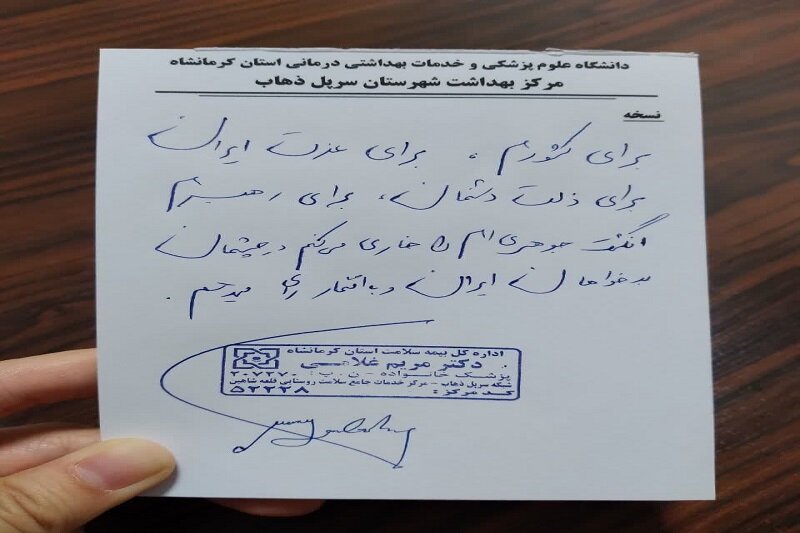 دانشگاه علوم پزشکی و خدمات بهداشتی درمانی استان کرمانشاه
مرکز بهداشت شهرستان سرپل ذهاب
نسخه
برای کشورم ، برای عزت ایران
برای ذلت دشمنان، برای رهبرم
انگشت جوهری ام را خاری می کنم در چشمان
بدخواهان ایران و با افتخار رای میدهم .
اداره کل بیمه سلامت استان کرمانشاه
دکتر مریم غلامی
پزشک خانواده - ن . پ : ۲۰۷۲۷۰
شبکه سرپل ذهاب - مرکز خدمات جامع سلامت روستایی قلعه شاهین
کد مرکز : ۵۲۲۲۸